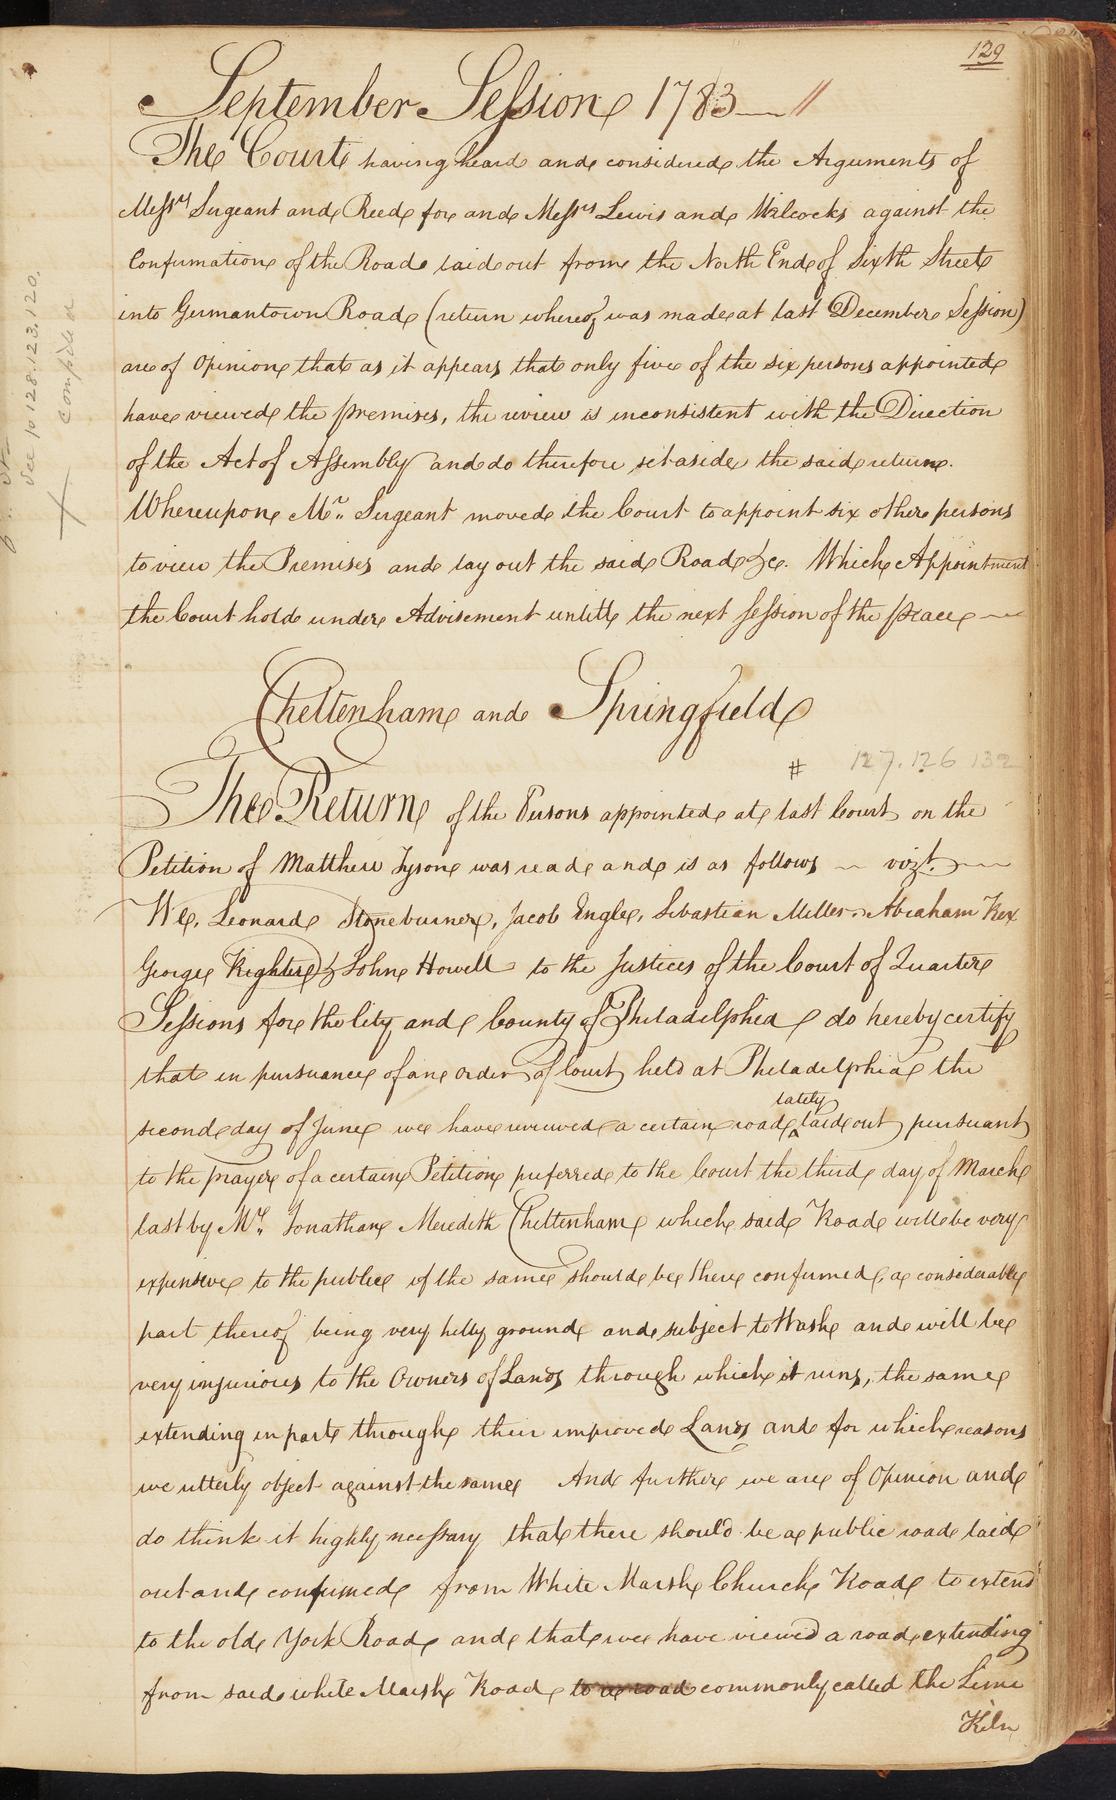 129
September Session 1783
The Court having heard and considered the Arguments of
Messrs Sergeant and Reed for and Messrs Lewis and Wilcocks against the
Confirmation of the Road laid out from the North End of Sixth Street
into Germantown Road (return whereof was made at last December Session)
are of Opinion that as it appears that only five of the six persons appointed
have viewed the premises, the review is inconsistent with the Direction
of the Act of Assembly and do therefore set aside the said return.
Whereupon Mr. Sergeant moved the Court to appoint six other persons
to view the Premises and lay out the said Road &c. Which Appointment
the Court hold under Advisement untill the next Session of the peace
See to 128.123.120.
compiled
Cheltenham and Springfield
# 127.126 132
The Return of the Persons appointed at last Court on the
Petition of Matthew Tyson was read and is as follows vizt.
We, Leonard Stoneburner, Jacob Engle, Sebastian Miller, Abraham Rex
George Righter & John Howell to the Justices of the Court of Quarter
Sessions for the City and County of Philadelphia do hereby certify
that in pursuance of an order of Court held at Philadelphia the
lately
second day of June we have reviewed a certain road laid out pursuant
to the prayer of a certain Petition preferred to the Court the third day of March
last by Mr. Jonathan Meredith Cheltenham which said Road will be very
expensive to the public if the same should be there confirmed, a considerable
part thereof being very hilly ground and subject to Wash and will be
very injurious to the Owners of Lands through which it runs, the same
extending in part through their improved Lands and for which reasons
we utterly object against the same And further we are of Opinion and
do think it highly necessary that there should be a public road laid
out and confirmed from White Marsh Church Road to extend
to the old York Road and that we have viewed a road extending
from said white Marsh Road to a road commonly called the Lime
Kiln